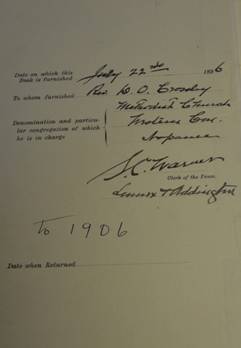 Date on which this Book is furnished July 22nd 1896
To whom furnished Rev. D. O. Crossby
Denomination and particular congregation of which he is in charge
Methodist Church
Napanee
S. C. Warner
Clerk of the Peace.
Lennox & Addington
To 1906
Date when Returned